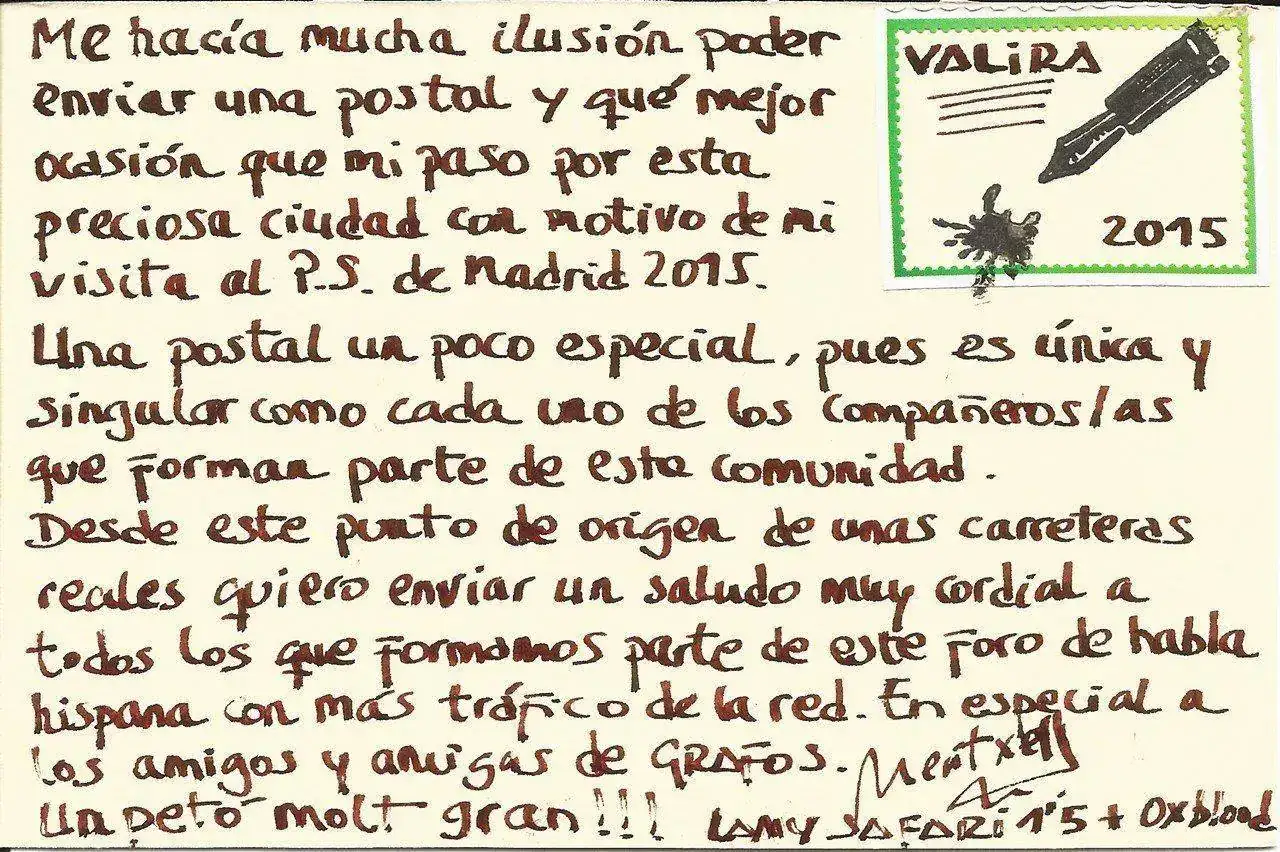 Me hacía mucha ilusión poder
enviar una postal y qué mejor
ocasión que mi paso por esta
preciosa ciudad con motivo de mi
visita al P.S. de Madrid 2015.
VALiRA
2015
Una postal un poco especial, pues es única y
singular como cada uno de los compañeros/as
que forman parte de esta comunidad.
Desde este punto de origen de unas carreteras
reales quiero enviar un saludo muy cordial a
todos los que formamos parte de este foro de habla
hispana con más tráfico de la red. En especial a
los amigos y amigas de GRAFOS.
Un petó molt gran!!!
LAMY SAFARi 1'5 + Oxblood